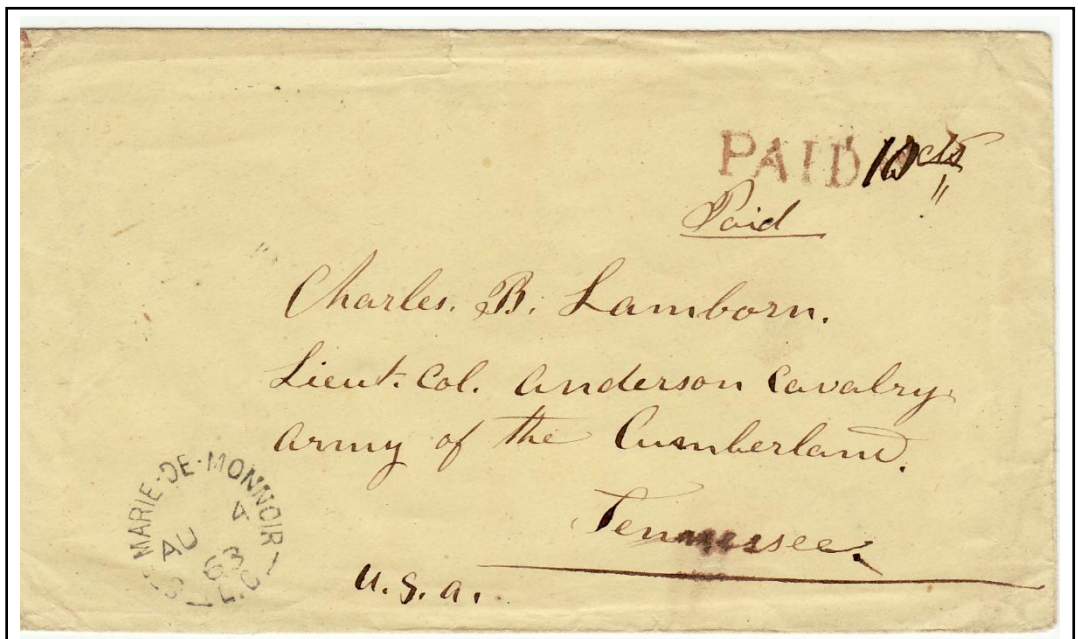 PAID 10 cts
Paid
Charles. B. Lamborn.
Lieut. Col. Anderson Cavalry.
Army of the Cumberland.
Tennessee.
U.S.A.
MARIE·DE·MONNOIR
AU 4
63
S L.C